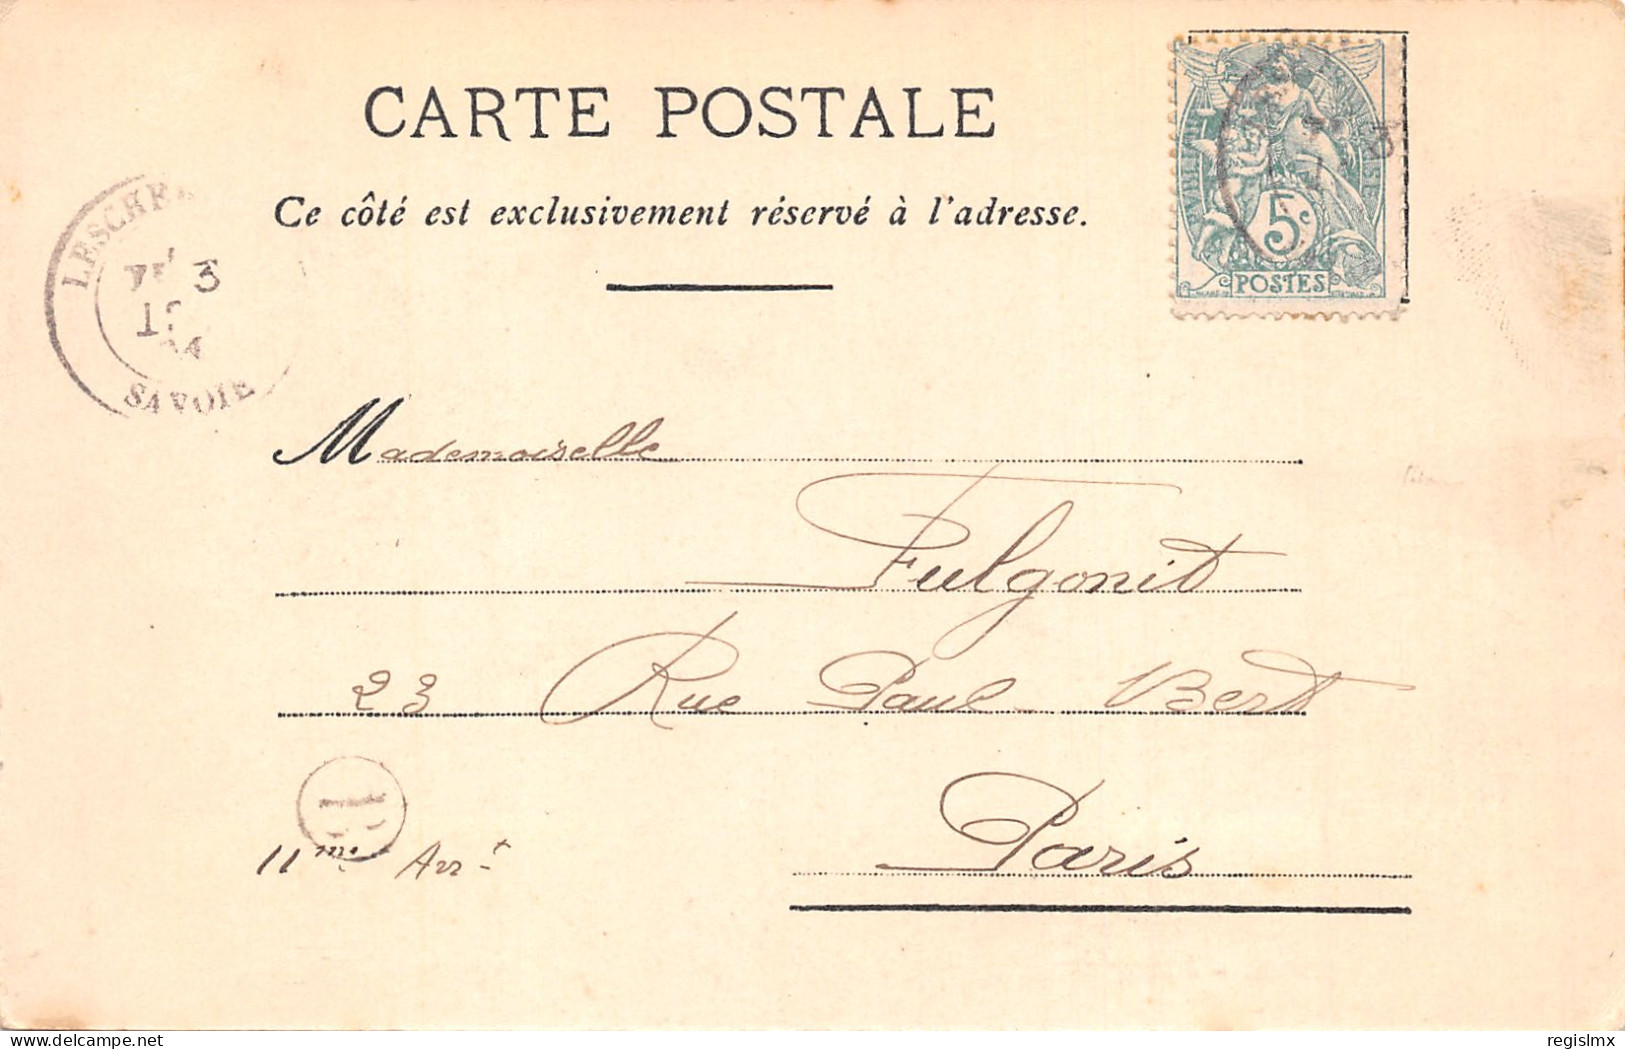 CARTE POSTALE
Ce côté est exclusivement réservé à l'adresse.
5c
POSTES
SAVOIE
Mademoiselle
Fulgonit
23 Rue Paul Bert
Paris
11me Arrt
delcampe.net
regislmx